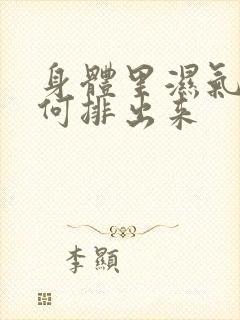 身體里濕氣
何排出来
李顯